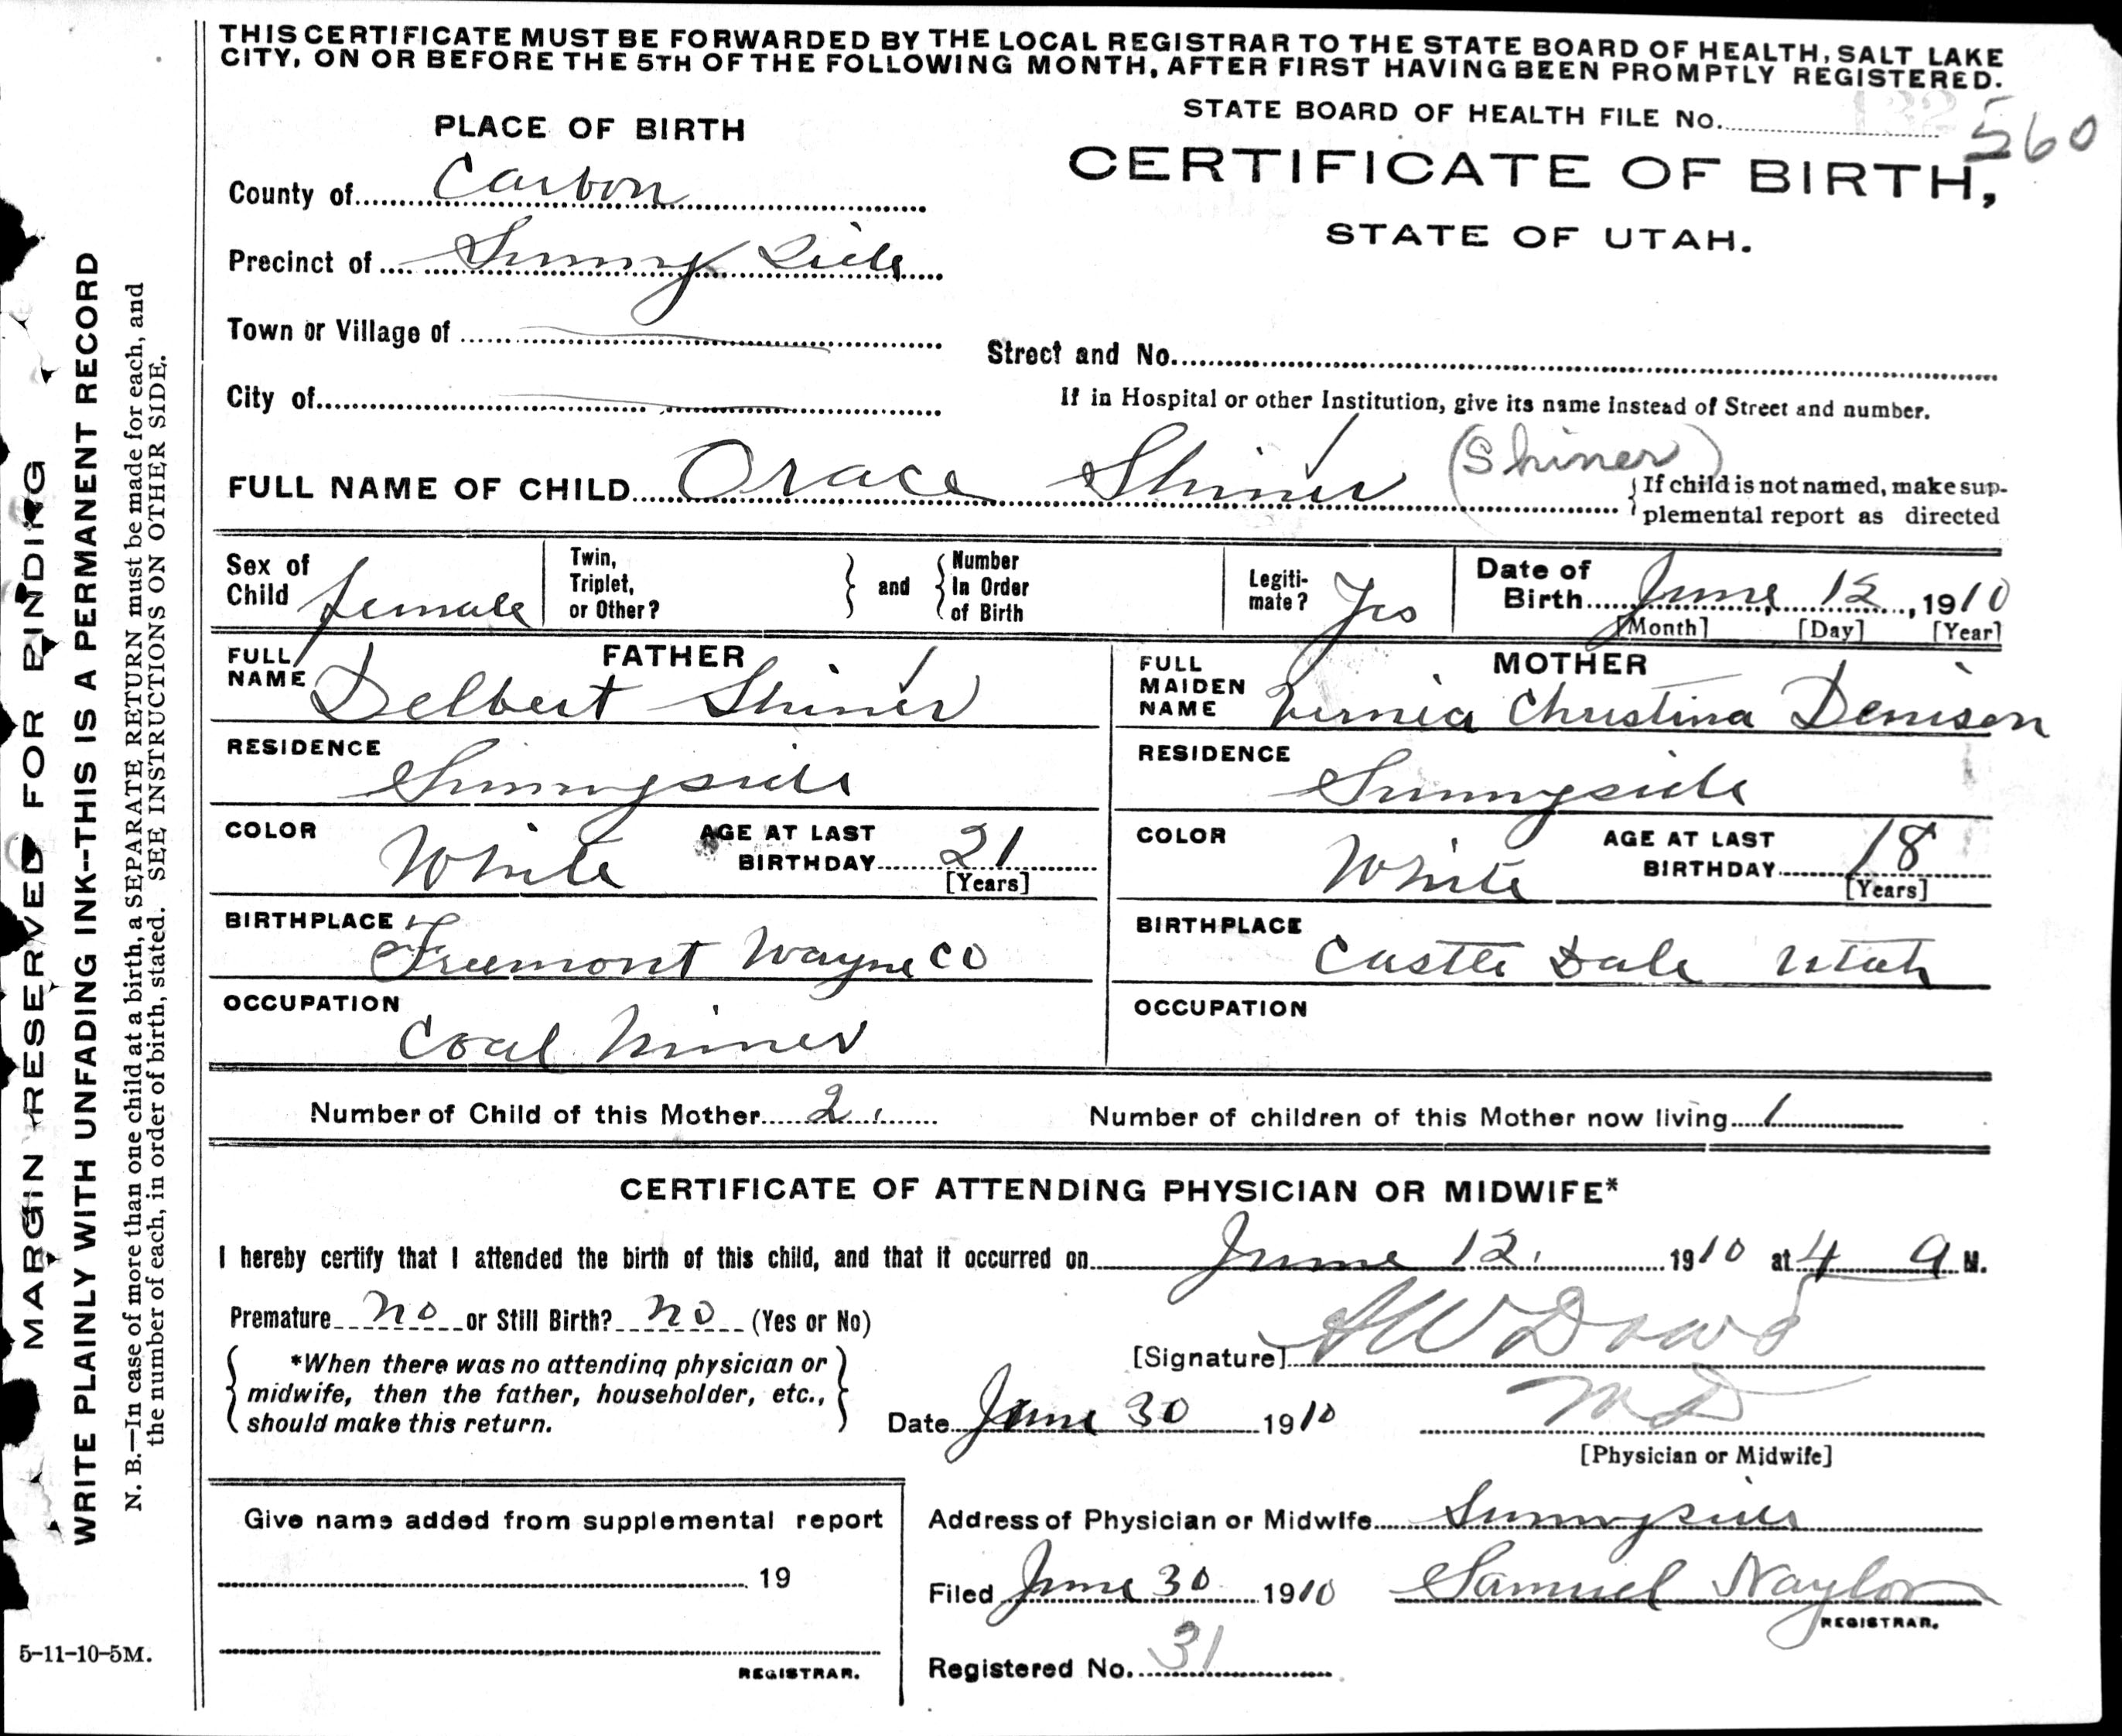 THIS CERTIFICATE MUST BE FORWARDED BY THE LOCAL REGISTRAR TO THE STATE BOARD OF HEALTH, SALT LAKE
CITY, ON OR BEFORE THE 5TH OF THE FOLLOWING MONTH, AFTER FIRST HAVING BEEN PROMPTLY REGISTERED.
STATE BOARD OF HEALTH FILE No. 560
CERTIFICATE OF BIRTH,
STATE OF UTAH.
PLACE OF BIRTH
County of Carbon
Precinct of Sunny Side
Town or Village of
City of
Street and No.
If in Hospital or other Institution, give its name instead of Street and number.
FULL NAME OF CHILD Orace Shiner (Shiner)
If child is not named, make sup-
plemental report as directed
Sex of Child female
Twin, Triplet, or Other?
and
Number In Order of Birth
Legiti-mate? Yes
Date of Birth June 12, 1910
[Month] [Day] [Year]
FATHER
FULL NAME Delbert Shiner
RESIDENCE Sunnyside
COLOR White AGE AT LAST BIRTHDAY 21
[Years]
BIRTHPLACE Freemont Wayne Co
OCCUPATION Coal Miner
MOTHER
FULL MAIDEN NAME Vernia Christina Denison
RESIDENCE Sunnyside
COLOR White AGE AT LAST BIRTHDAY 18
[Years]
BIRTHPLACE Castle Dale Utah
OCCUPATION
Number of Child of this Mother 2 Number of children of this Mother now living 1
CERTIFICATE OF ATTENDING PHYSICIAN OR MIDWIFE*
I hereby certify that I attended the birth of this child, and that it occurred on June 12, 1910 at 4 a M.
Premature no or Still Birth? no (Yes or No)
*When there was no attending physician or
midwife, then the father, householder, etc.,
should make this return.
[Signature] AW Dowd
MD
[Physician or Midwife]
Date June 30 1910
Give name added from supplemental report
19
REGISTRAR.
Address of Physician or Midwife Sunnyside
Filed June 30 1910 Samuel Naylor
REGISTRAR.
Registered No. 31
5-11-10-5M.
MARGIN RESERVED FOR BINDING
WRITE PLAINLY WITH UNFADING INK--THIS IS A PERMANENT RECORD
N. B.—In case of more than one child at a birth, a SEPARATE RETURN must be made for each, and
the number of each, in order of birth, stated. SEE INSTRUCTIONS ON OTHER SIDE.